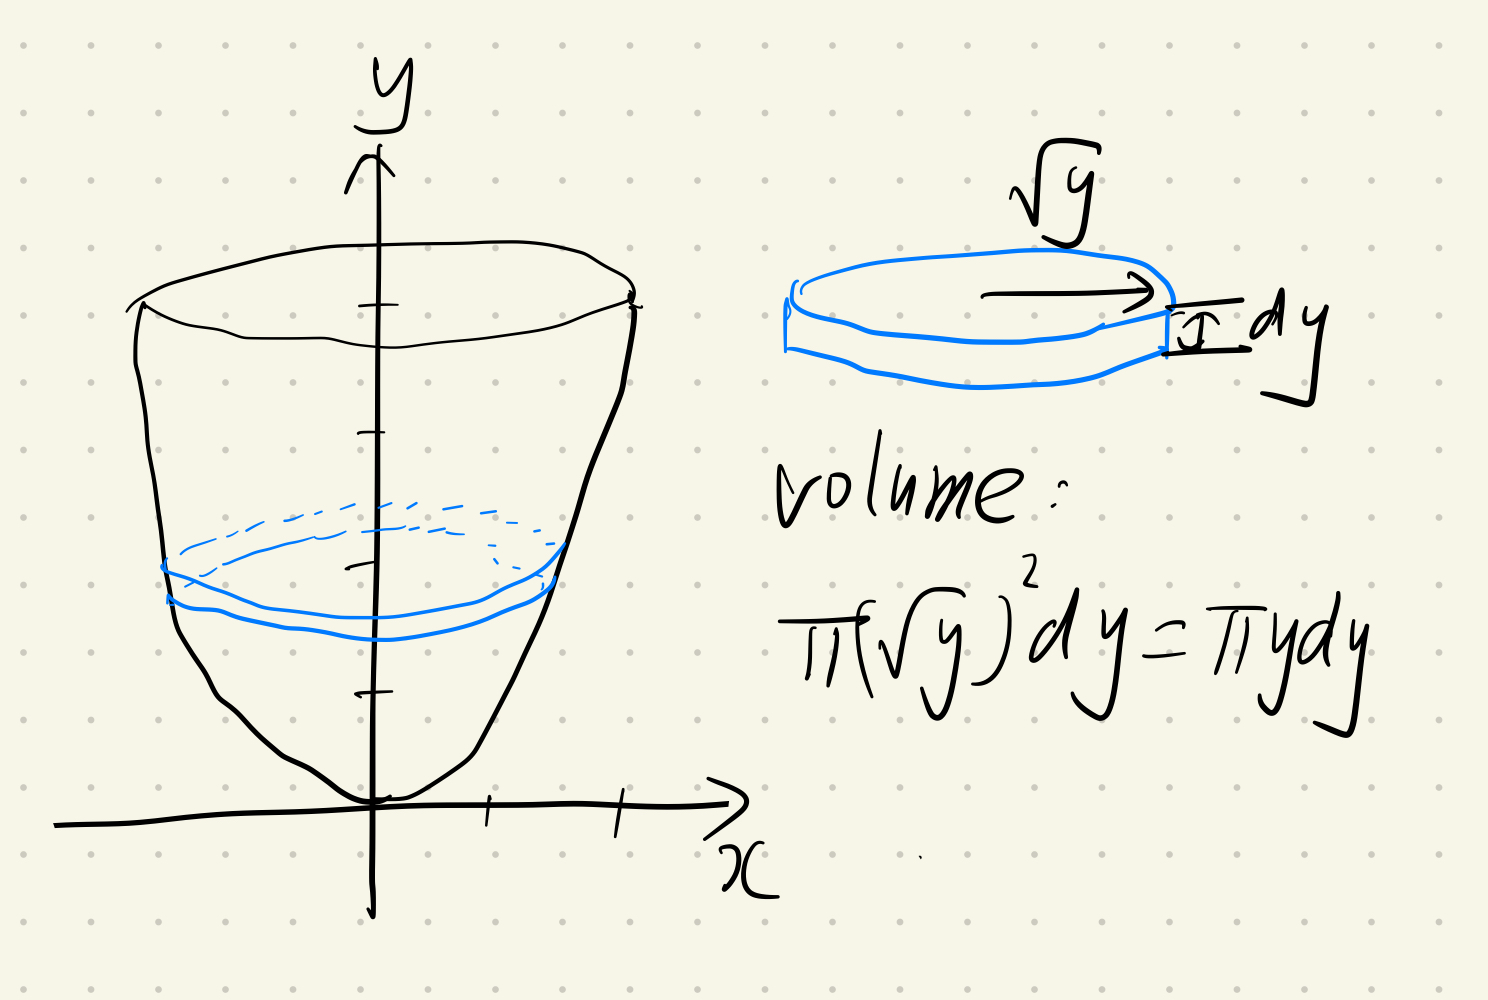 y
√y
dy
volume:
π(√y)²dy = πydy
x